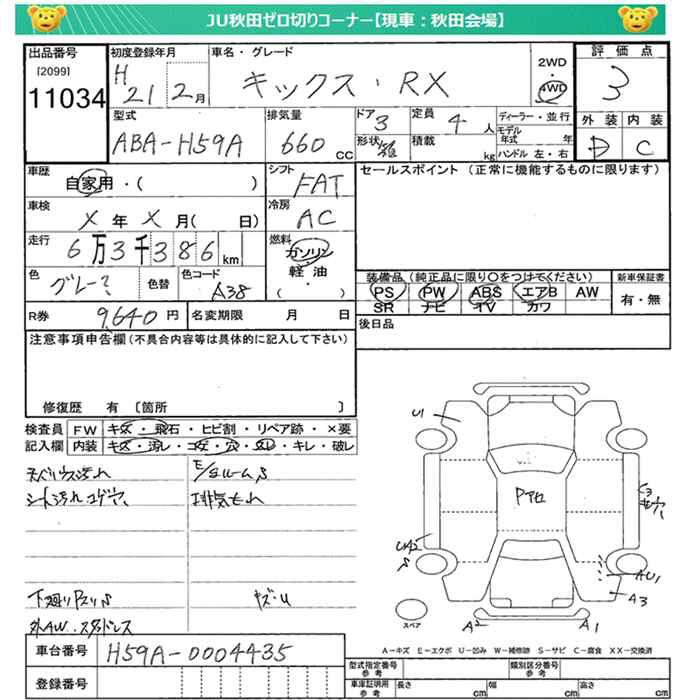 JU秋田ゼロ切りコーナー【現車：秋田会場】
出品番号
[2099]
11034
初度登録年月
H 21 2月
車名・グレード
キックス・RX
2WD
4WD
評価点
3
外装 内装
D C
型式
ABA-H59A
排気量
660 cc
ドア 3
形状
定員 4 人
積載 kg
ディーラー・並行
モデル年式 年
ハンドル 左・右
車歴
自家用・( )
シフト
FAT
セールスポイント (正常に機能するものに限ります)
車検
X 年 X 月( 日)
冷房
AC
走行
6万3千386km
燃料
ガソリン
・
軽油
・
( )
色
グレー?
色替
色コード
A38
装備品(純正品に限り○をつけてください)
PS PW ABS エアB AW
SR ナビ TV カワ
新車保証書
有・無
R券 9,640円
名変期限 月 日
後日品
注意事項申告欄(不具合内容等は具体的に記入して下さい)
修復歴 有 〔箇所 〕
検査員 FW キズ・飛石・ヒビ割・リペア跡・×要
記入欄 内装 キズ・汚レ・コゲ・穴・スレ・キレ・破レ
E/gルームS
シート汚れ コゲ穴
排気もれ
下廻りPスリS
キズ・U
外AW. スタッドレス
U1
Pアロ
UA2
S
AU1
A3
A2
A1
スペア
A-キズ E-エクボ U-凹み W-補修跡 S-サビ C-腐食 XX-交換済
車台番号
H59A-0004435
登録番号
型式指定番号
参考
類別区分番号
参考
車庫証明用
参考
長さ cm
幅 cm
高さ cm